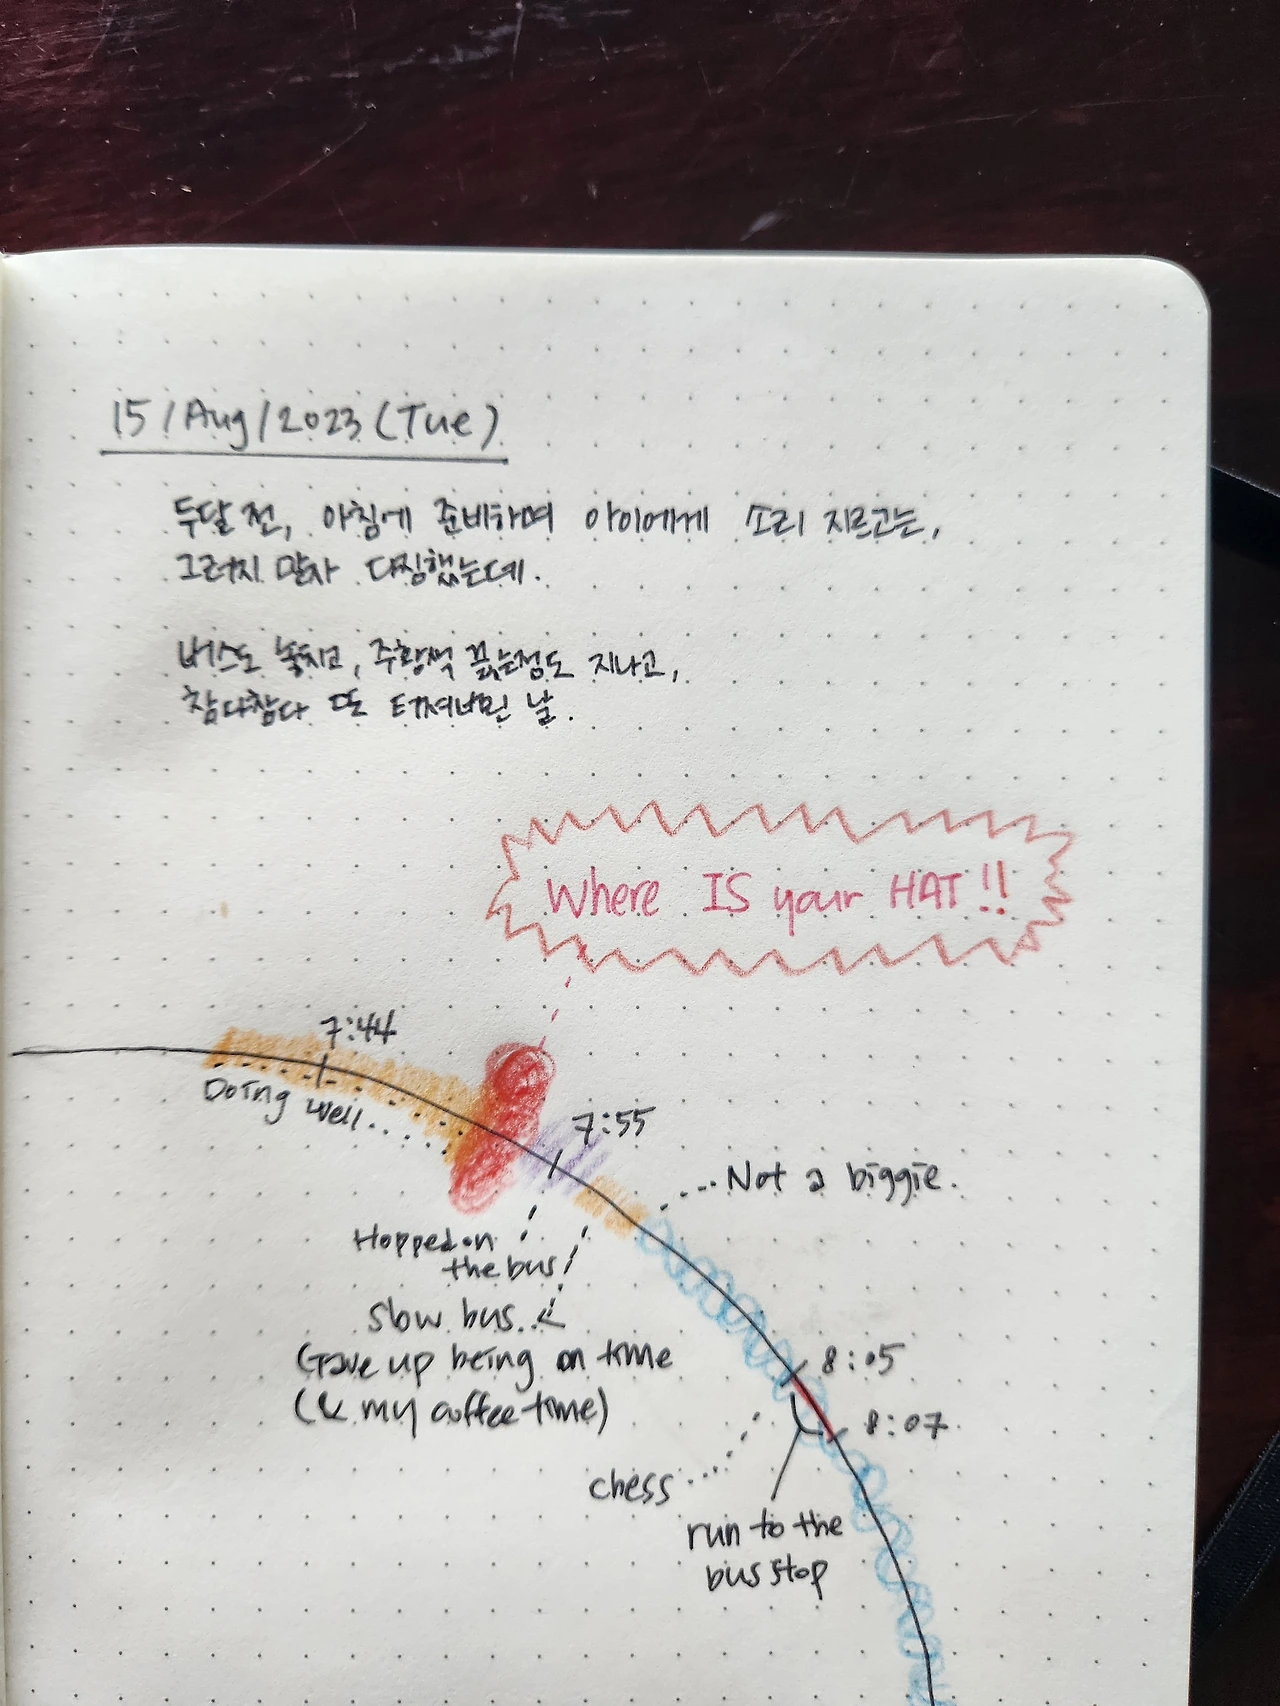 15/Aug/2023 (Tue)
두달 전, 아침에 준비하며 아이에게 소리 지르고는,
그러지 말자 다짐했는데.
버스도 놓치고, 주황색 끓는점도 지나고,
참다참다 또 터져버린 날.
Where IS your HAT!!
7:44
Doing well...
7:55
Not a biggie.
Hopped on
the bus
slow bus..
Gave up being on time
(& my coffee time)
8:05
8:07
chess
run to the
bus stop